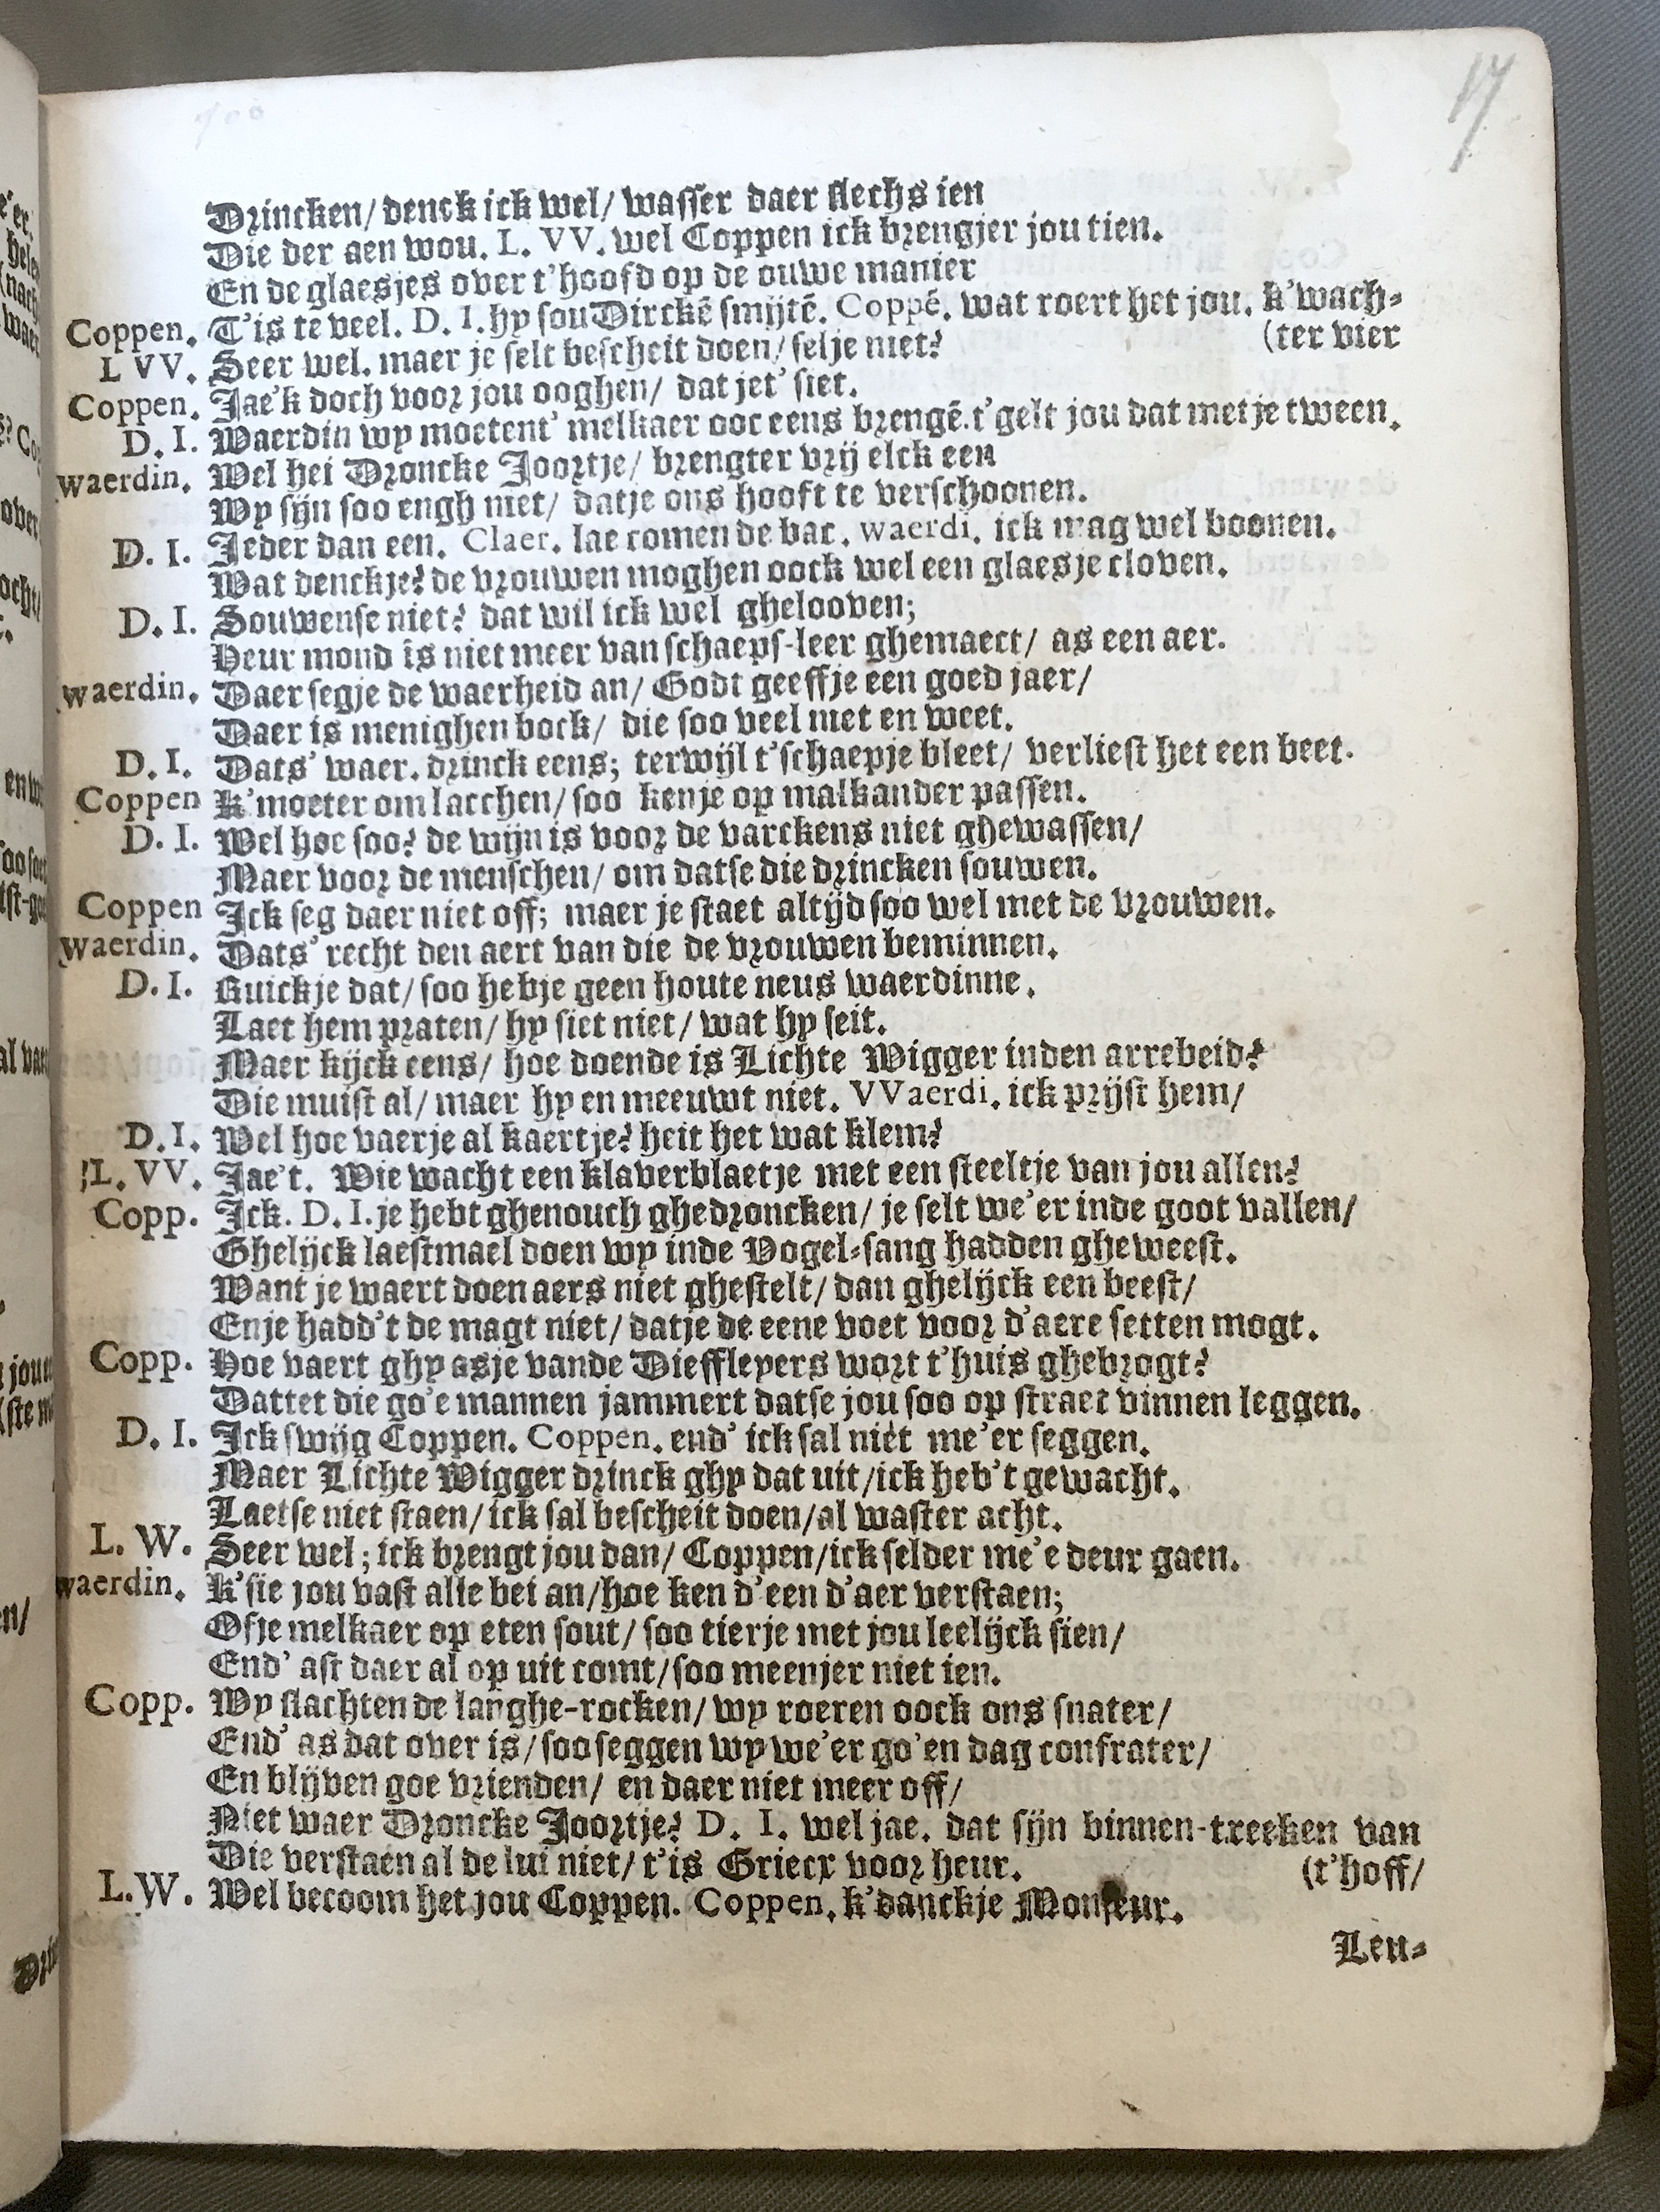 17
Drincken/ denck ick wel/ wasser daer slechs ien
Die der aen wou. L. VV. wel Coppen ick brengjer jou tien.
En de glaesjes over t'hoofd op de ouwe manier
Coppen. T'is te veel. D. I. hy sou Dirckē smijtē. Coppē. wat roert het jou. k'wach-
(ter vier
L VV. Seer wel. maer je selt bescheit doen/ selje niet?
Coppen. Jae'k doch voor jou ooghen/ dat jet' siet.
D. I. Waerdin wy moetent' melkaer ooc eens brengē. t'gelt jou dat met je tween.
waerdin. Wel hei Droncke Joortje/ brengter vrij elck een
Wy sijn soo engh niet/ datje ons hooft te verschoonen.
D. I. Jeder dan een. Claer. lae comen de bac. waerdi. ick mag wel boonen.
Wat denckje? de vrouwen moghen oock wel een glaesje cloven.
D. I. Souwense niet? dat wil ick wel ghelooven;
Heur mond is niet meer van schaeps-leer ghemaect/ as een aer.
waerdin. Daer segje de waerheid an/ Godt geeffje een goed jaer/
Daer is menighen bock/ die soo veel niet en weet.
D. I. Dats' waer. drinck eens; terwijl t'schaepje bleet/ verliest het een beet.
Coppen K'moeter om lacchen/ soo kenje op malkander passen.
D. I. Wel hoe soo? de wijn is voor de varckens niet ghewassen/
Maer voor de menschen/ om datse die drincken souwen.
Coppen Ick seg daer niet off; maer je staet altijd soo wel met de vrouwen.
waerdin. Dats' recht den aert van die de vrouwen beminnen.
D. I. Ruickje dat/ soo hebje geen houte neus waerdinne.
Laet hem praten/ hy siet niet/ wat hy seit.
Maer kijck eens/ hoe doende is Lichte Wigger inden arrebeid?
Die muist al/ maer hy en meeuwt niet. VVaerdi. ick prijst hem/
D. I. Wel hoe vaerje al kaertje? heit het wat klem?
L. VV. Jae't. Wie wacht een klaverblaetje met een steeltje van jou allen?
Copp. Ick. D. I. je hebt ghenouch ghedroncken/ je selt we'er inde goot vallen/
Ghelijck laestmael doen wy inde Vogel-sang hadden gheweest.
Want je waert doen aers niet ghestelt/ dan ghelijck een beest/
En je hadd't de magt niet/ datje de eene voet voor d'aere setten mogt.
Copp. Hoe vaert ghy asje vande Diefflepers wort t'huis ghebrogt?
Dattet die go'e mannen jammert datse jou soo op straet vinnen leggen.
D. I. Ick swijg Coppen. Coppen. end' ick sal niet me'er seggen.
Maer Lichte Wigger drinck ghy dat uit/ ick heb't gewacht.
Laetse niet staen/ ick sal bescheit doen/ al waster acht.
L. W. Seer wel; ick brengt jou dan/ Coppen/ ick selder me'e deur gaen.
waerdin. K'sie jou vast alle bei an/ hoe ken d'een d'aer verstaen;
Ofje melkaer op eten sout/ soo tierje met jou leelijck sien/
End' ast daer al op uit comt/ soo meenjer niet ien.
Copp. Wy slachten de langhe-rocken/ wy roeren oock ons snater/
End' as dat over is/ soo seggen wy we'er go'en dag confrater/
En blijven goe vrienden/ en daer niet meer off/
Niet waer Droncke Joortje? D. I. wel jae. dat sijn binnen-treeken van
Die verstaen al de lui niet/ t'is Griecx voor heur. (t'hoff/
L.W. Wel becoom het jou Coppen. Coppen. k'danckje Monseur.
Leu-